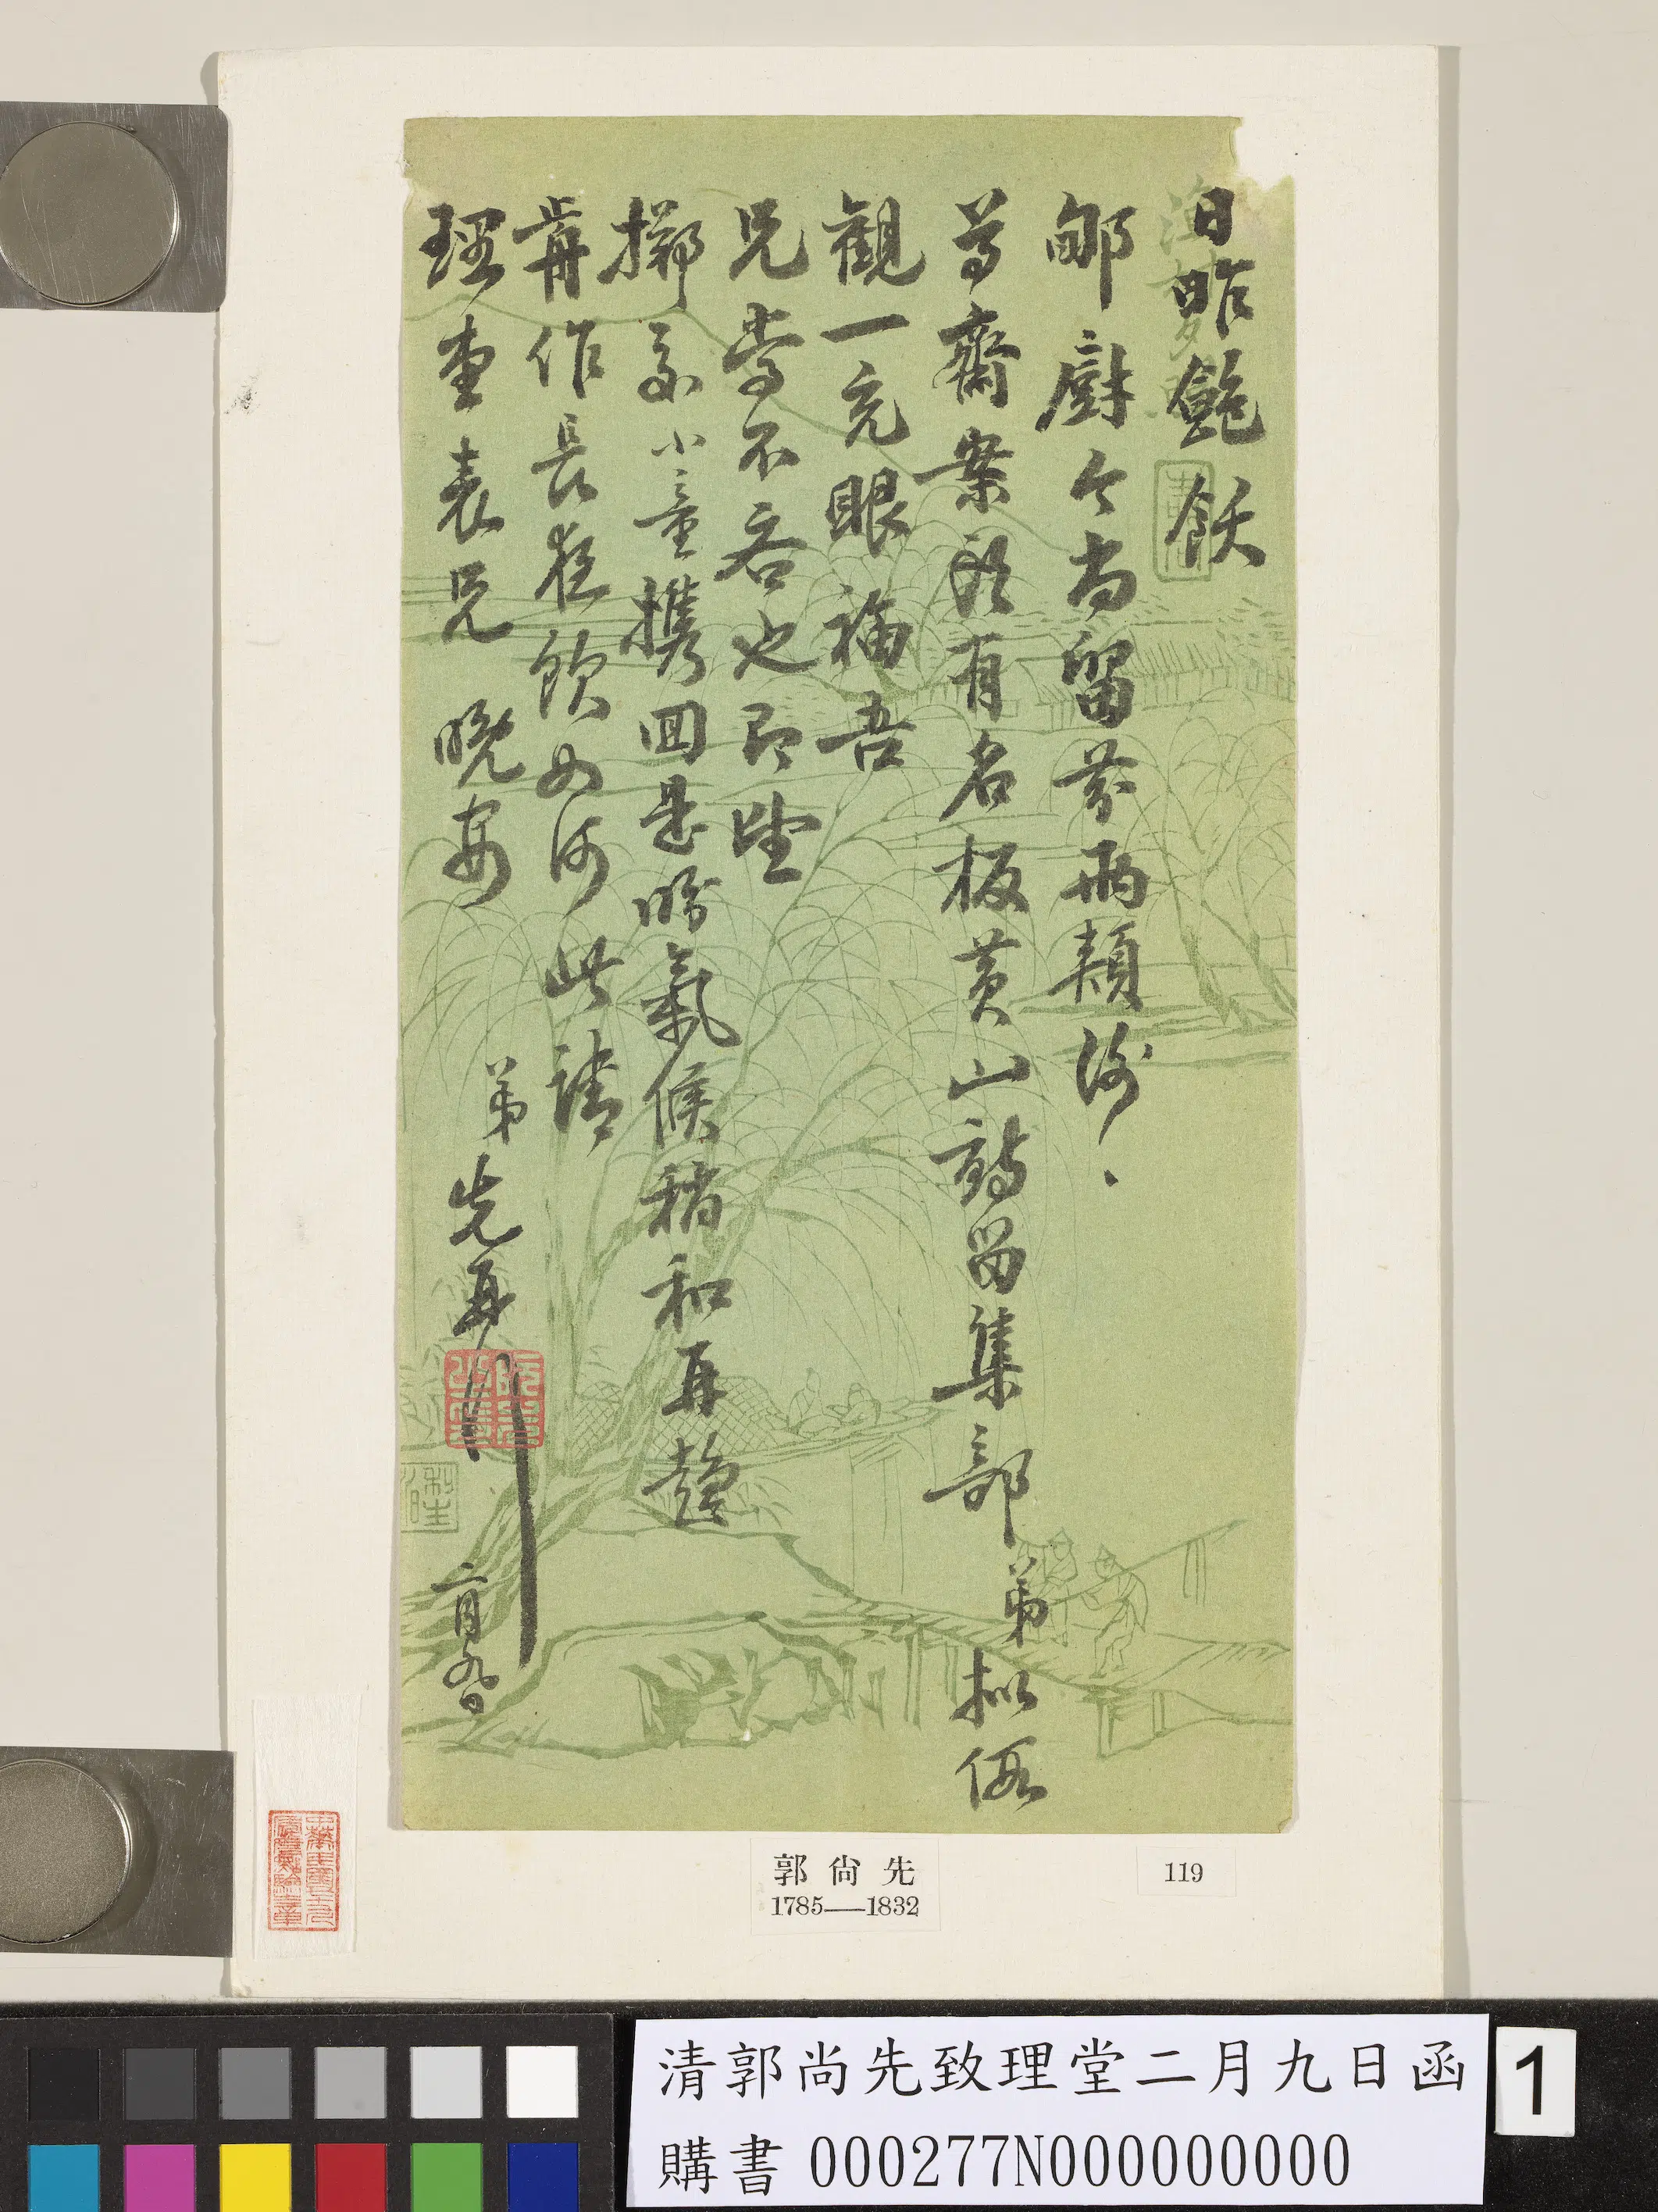 日昨飽飫
郇廚今尚留芬兩頰謝、
尊齋案頭有名板黃山谷留集部弟擬假
觀一充眼福吾
兄当不吝也即望
擲交小童攜回是盼氣候稍和再趨
齋作長夜飲如何此請
理堂表兄 晚安
弟 先再
二月九日
郭尙先
1785—1832
119
清郭尚先致理堂二月九日函
購書 000277N000000000
1